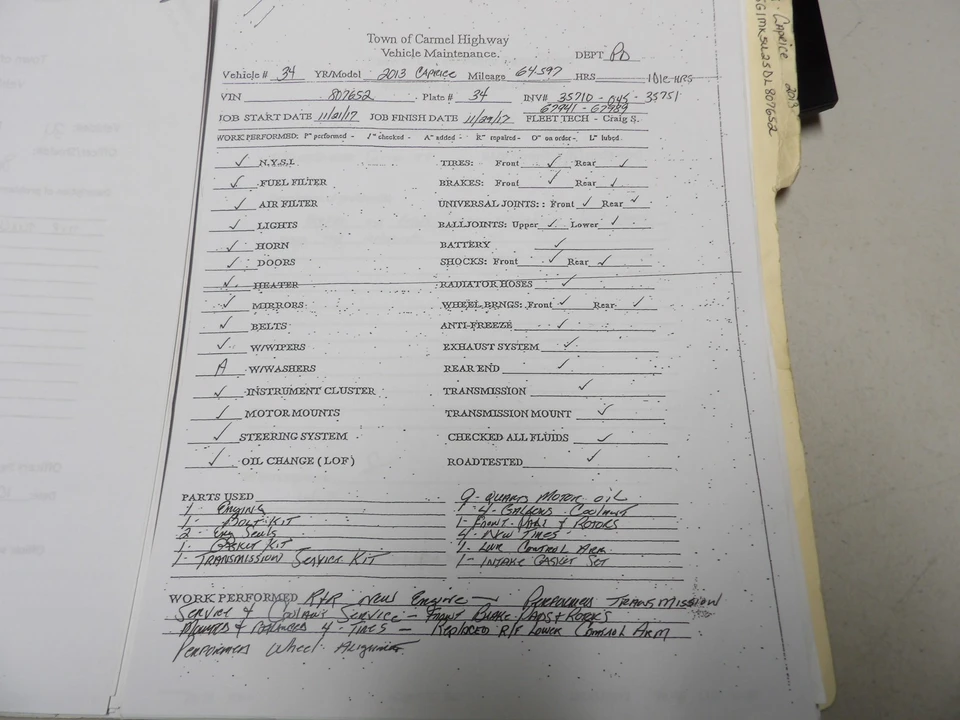 Town of Carmel Highway
Vehicle Maintenance. DEPT PD
Vehicle # 34 YR/Model 2013 CAPRICE Mileage 64597 HRS IDLE HRS
VIN 807652 Plate # 34 INV# 35710 - 045 - 35751
67941 - 67989
JOB START DATE 11/21/17 JOB FINISH DATE 11/29/17 FLEET TECH - Craig S.
WORK PERFORMED: P" performed - J" checked - A" added - R" repaired - O" on order - L" lubed
✓ N.Y.S.I. TIRES: Front ✓ Rear ✓
✓ FUEL FILTER BRAKES: Front ✓ Rear ✓
✓ AIR FILTER UNIVERSAL JOINTS: : Front ✓ Rear ✓
✓ LIGHTS BALLJOINTS: Upper ✓ Lower ✓
✓ HORN BATTERY ✓
✓ DOORS SHOCKS: Front ✓ Rear ✓
✓ HEATER RADIATOR HOSES ✓
✓ MIRRORS WHEEL BRNGS: Front ✓ Rear ✓
✓ BELTS ANTI-FREEZE ✓
✓ W/WIPERS EXHAUST SYSTEM ✓
A W/WASHERS REAR END ✓
✓ INSTRUMENT CLUSTER TRANSMISSION ✓
✓ MOTOR MOUNTS TRANSMISSION MOUNT ✓
✓ STEERING SYSTEM CHECKED ALL FLUIDS ✓
✓ OIL CHANGE (LOF) ROADTESTED ✓
PARTS USED 9 - QUARTS MOTOR OIL
1 - ENGINE 4 - GALLONS COOLANT
1 - BOLT KIT 1 - FRONT PADS & ROTORS
2 Seals 4 - NEW TIRES
1 - GASKET KIT 1 - LWR CONTROL ARM
1 - TRANSMISSION SERVICE KIT 1 - INTAKE GASKET SET
WORK PERFORMED R&R NEW ENGINE - PERFORMED TRANSMISSION
SERVICE & COOLANT SERVICE - FRONT BRAKE PADS & ROTORS
MOUNTED & BALANCED 4 - TIRES - REPLACED R/F LOWER CONTROL ARM
PERFORMED WHEEL ALIGNMENT
CAPRICE 2013